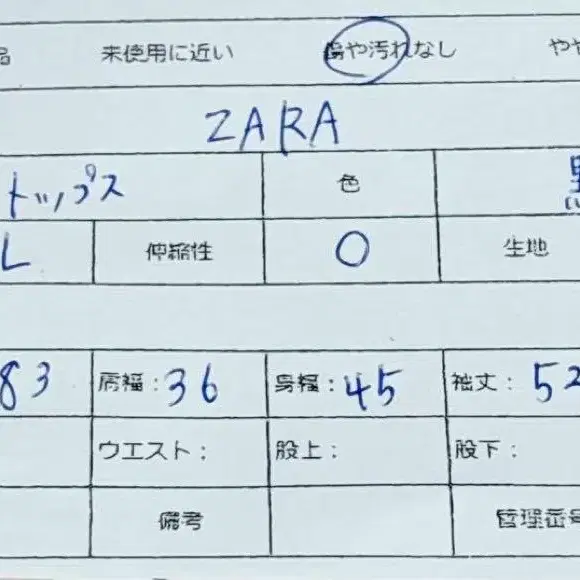 品 未使用に近い 傷や汚れなし やや
ZARA
トップス 色 黒
L 伸縮性 O 生地
83 肩幅：36 身幅：45 袖丈：52
ウエスト： 股上： 股下：
備考 管理番号